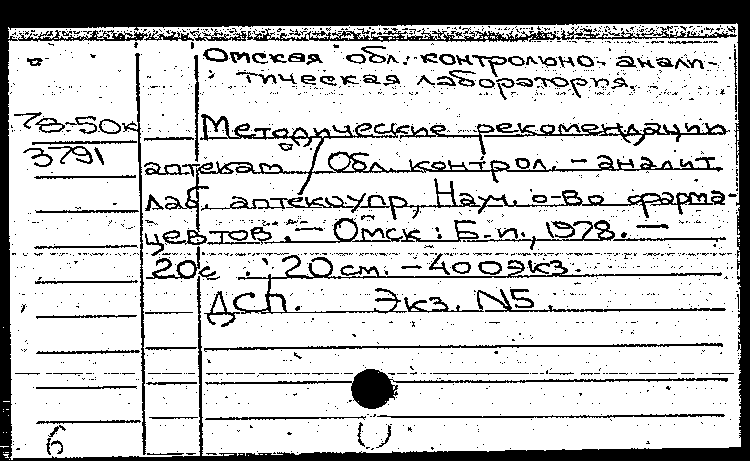 Омская обл. контрольно-анали-
тическая лаборатория.
78-50к
3791
Методические рекомендации
аптекам / Обл. контрол.-аналит
лаб. аптекоупр, Науч. о-во фарма-
цевтов. — Омск: Б.и., 1978. —
20с.; 20 см. — 400экз.
Дсп. Экз. N5.
6